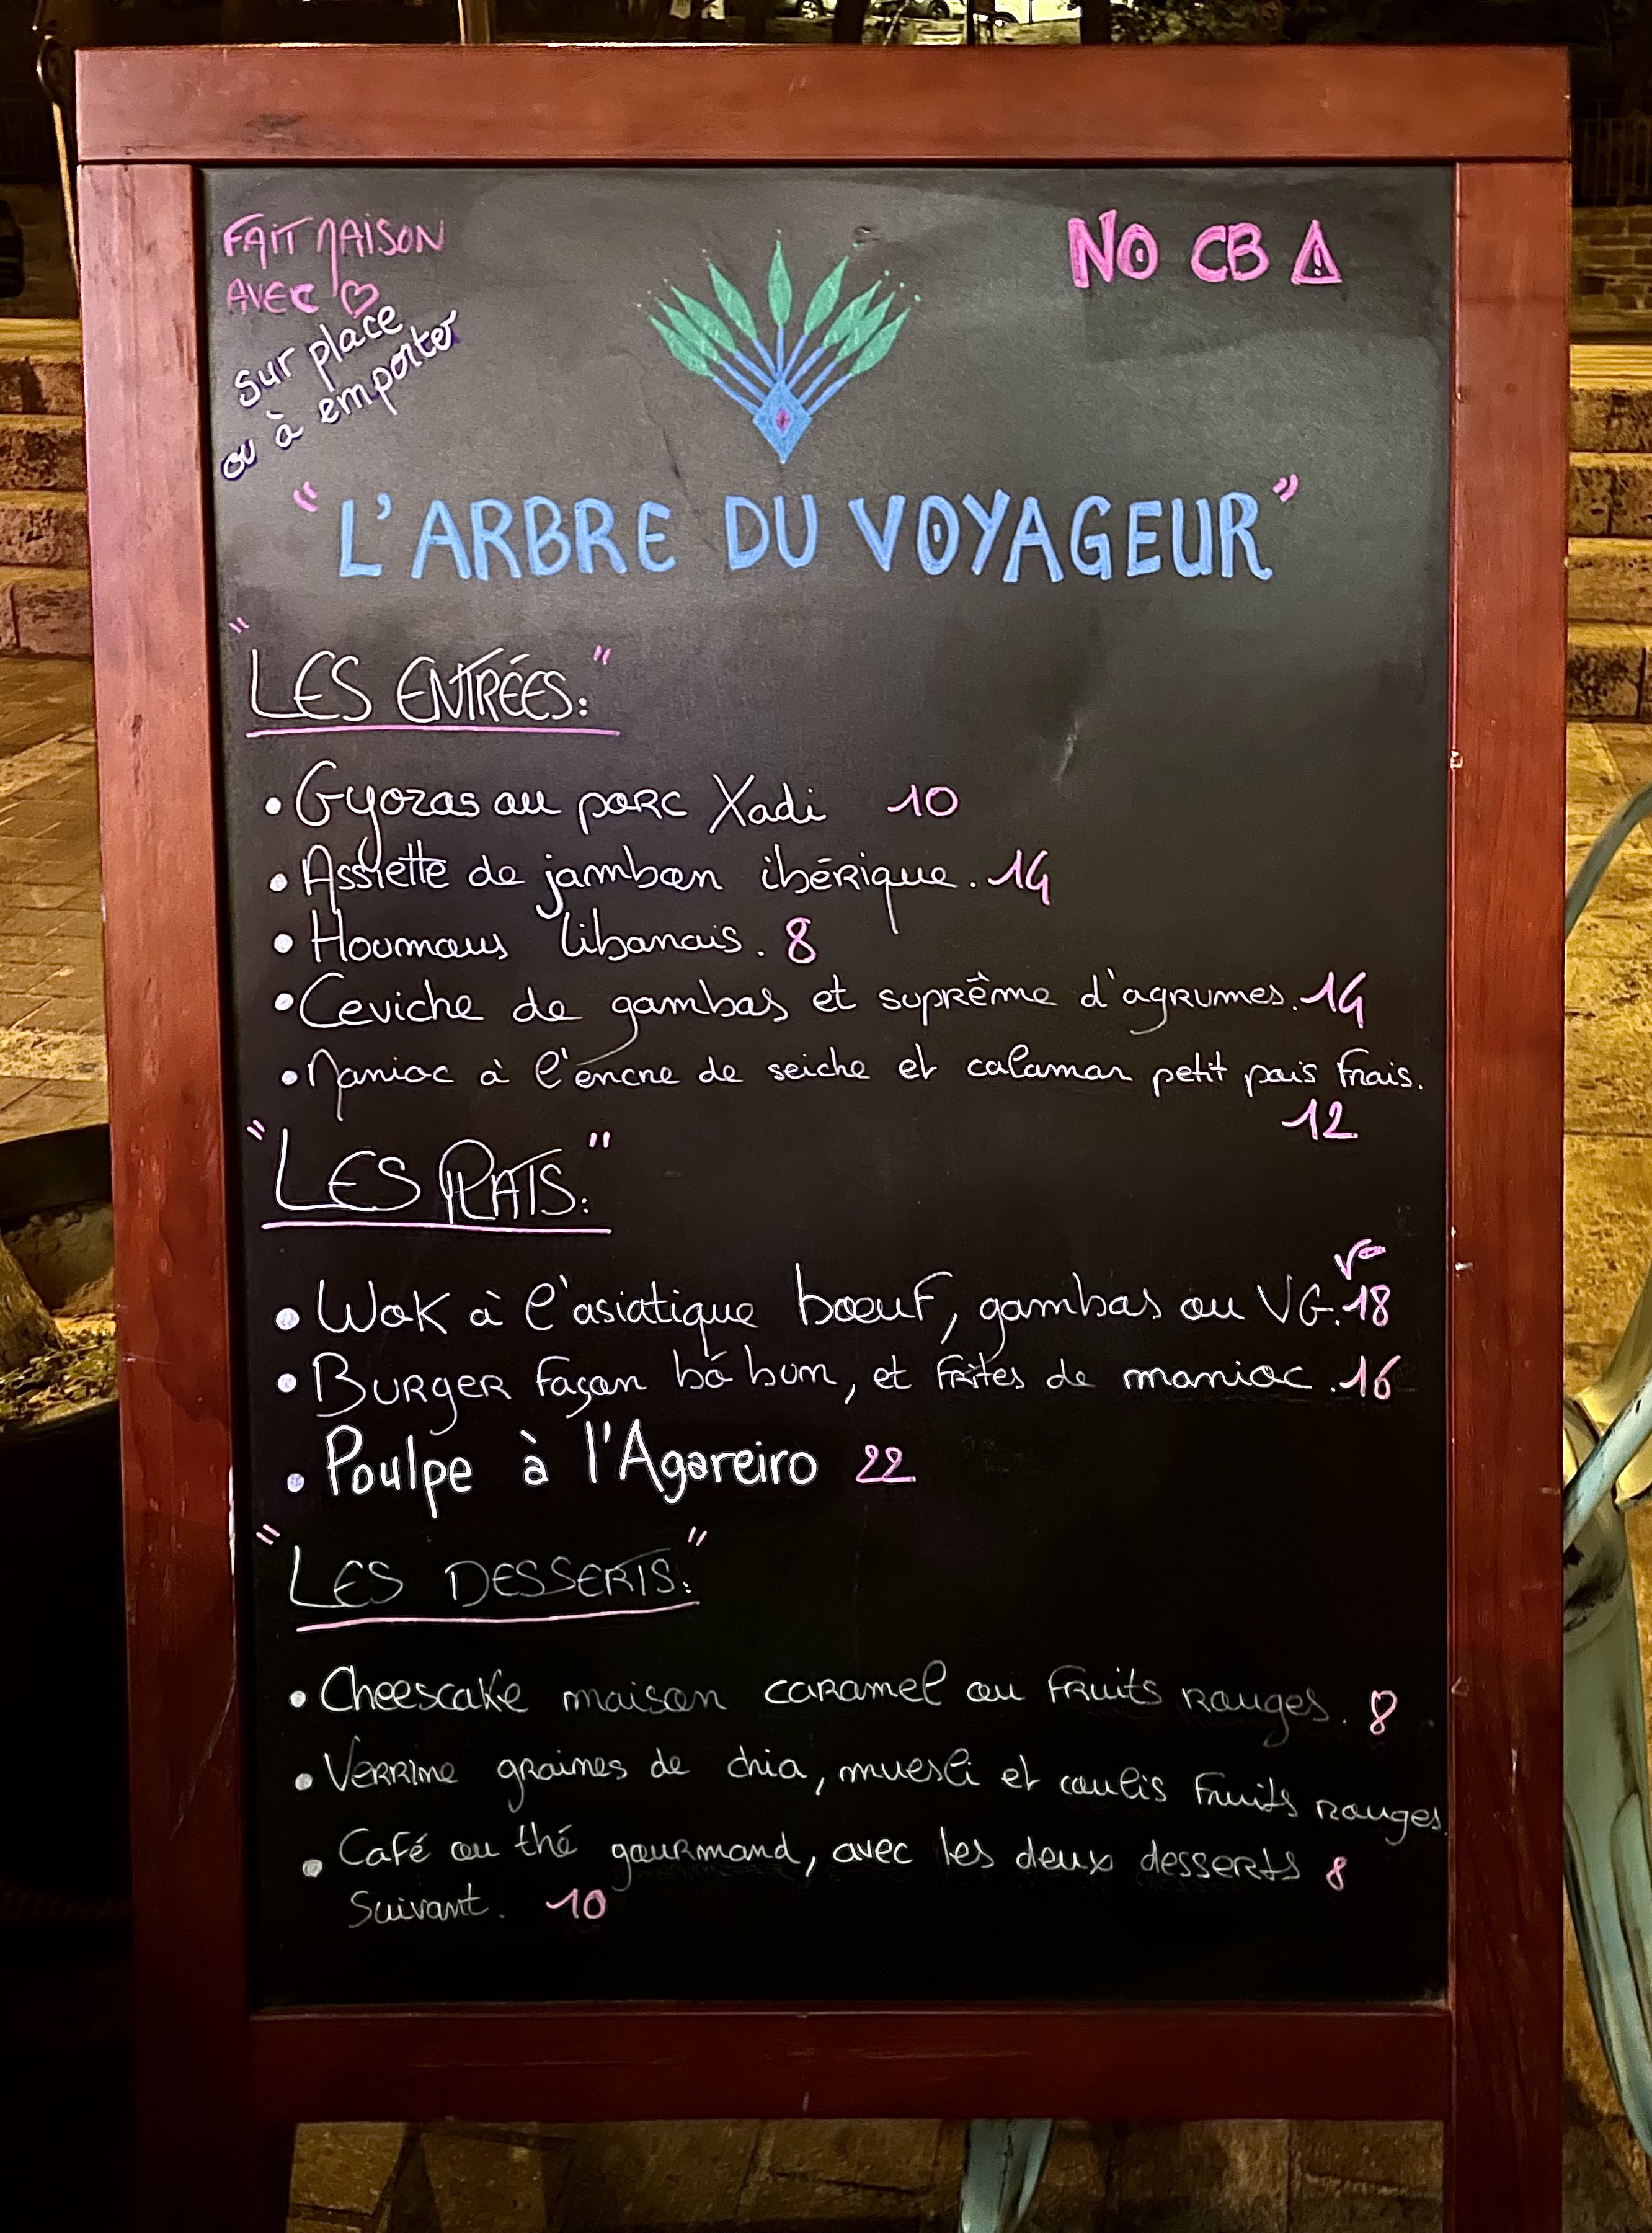 FAIT MAISON
AVEC ♡
sur place
ou à emporter
NO CB ⚠
"L'ARBRE DU VOYAGEUR"
"LES ENTRÉES:"
• Gyozas au porc Xadi 10
• Assiette de jambon ibérique. 14
• Houmous libanais. 8
• Ceviche de gambas et suprême d'agrumes. 14
• Manioc à l'encre de seiche et calamar petit pois frais.
12
"LES PLATS:"
• Wok à l'asiatique bœuf, gambas ou VG. 18
• BURGER façon bó bun, et frites de manioc. 16
• Poulpe à l'Agareiro 22
"LES DESSERTS:"
• Cheescake maison caramel ou fruits rouges. 8
• Verrine graines de chia, muesli et coulis fruits rouges
8
• Café ou thé gourmand, avec les deux desserts
Suivant. 10